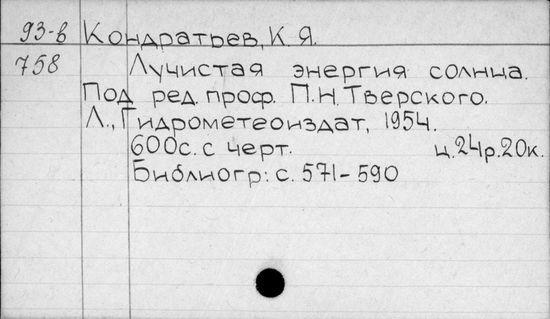 93-в Кондратьев, К. Я.
758 Лучистая энергия солнца.
Под ред. проф. П.Н. Тверского.
Л., Гидрометеоиздат, 1954.
600с. с черт. ц. 24р. 20к.
Библиогр: с. 571-590